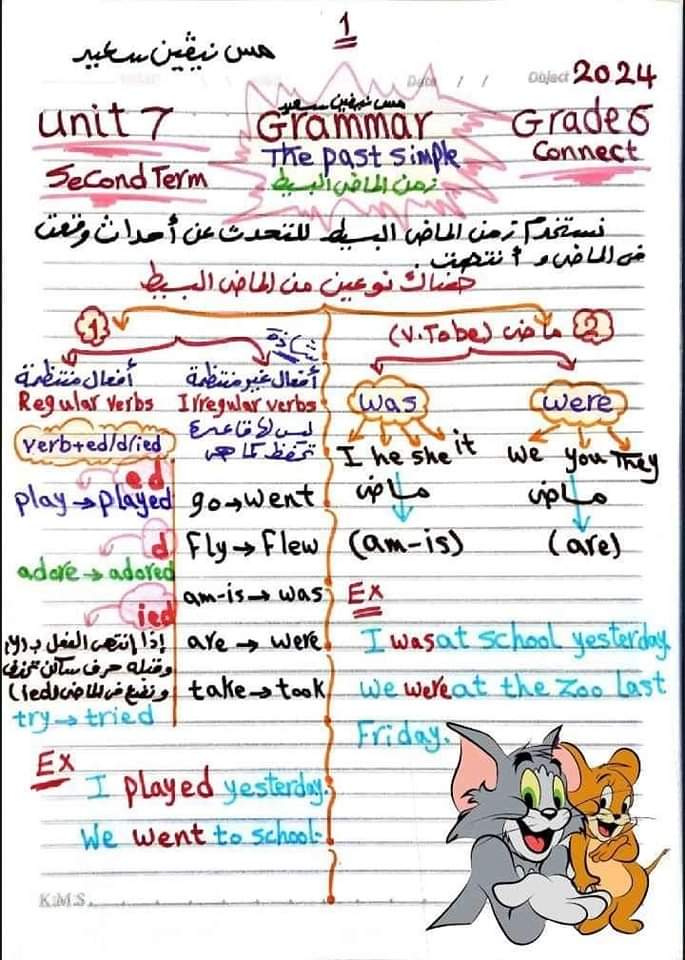 1
مس نيڤين سعيد
Date / /
Object 2024
مس نيفين سعيد
Unit 7
Grammar
Grade 6
The past simple
Connect
Second Term
زمن الماضى البسيط
نستخدم زمن الماضى البسيط للتحدث عن أحداث وقعت
فى الماضى و انتهت.
هناك نوعين من الماضى البسيط
1
2 ماضى (v.To be)
شاذة
أفعال منتظمة
أفعال غير منتظمة
Regular verbs
Irregular verbs
was
were
verb+ed/d/ied
ليس لها قاعدة
تحفظ كما هى
I he she it
we you They
ed
play → played
go → went
ماضى
ماضى
d
Fly → Flew
(am-is)
(are)
adore → adored
am-is → was
Ex
ied
إذا إنتهى الفعل بـ (y)
وقبله حرف ساكن تحذف
ونضع فى الماضى (ied)
try → tried
are → were
take → took
I was at school yesterday.
We were at the zoo last
Friday.
Ex
I played yesterday.
We went to school.
K.M.S.